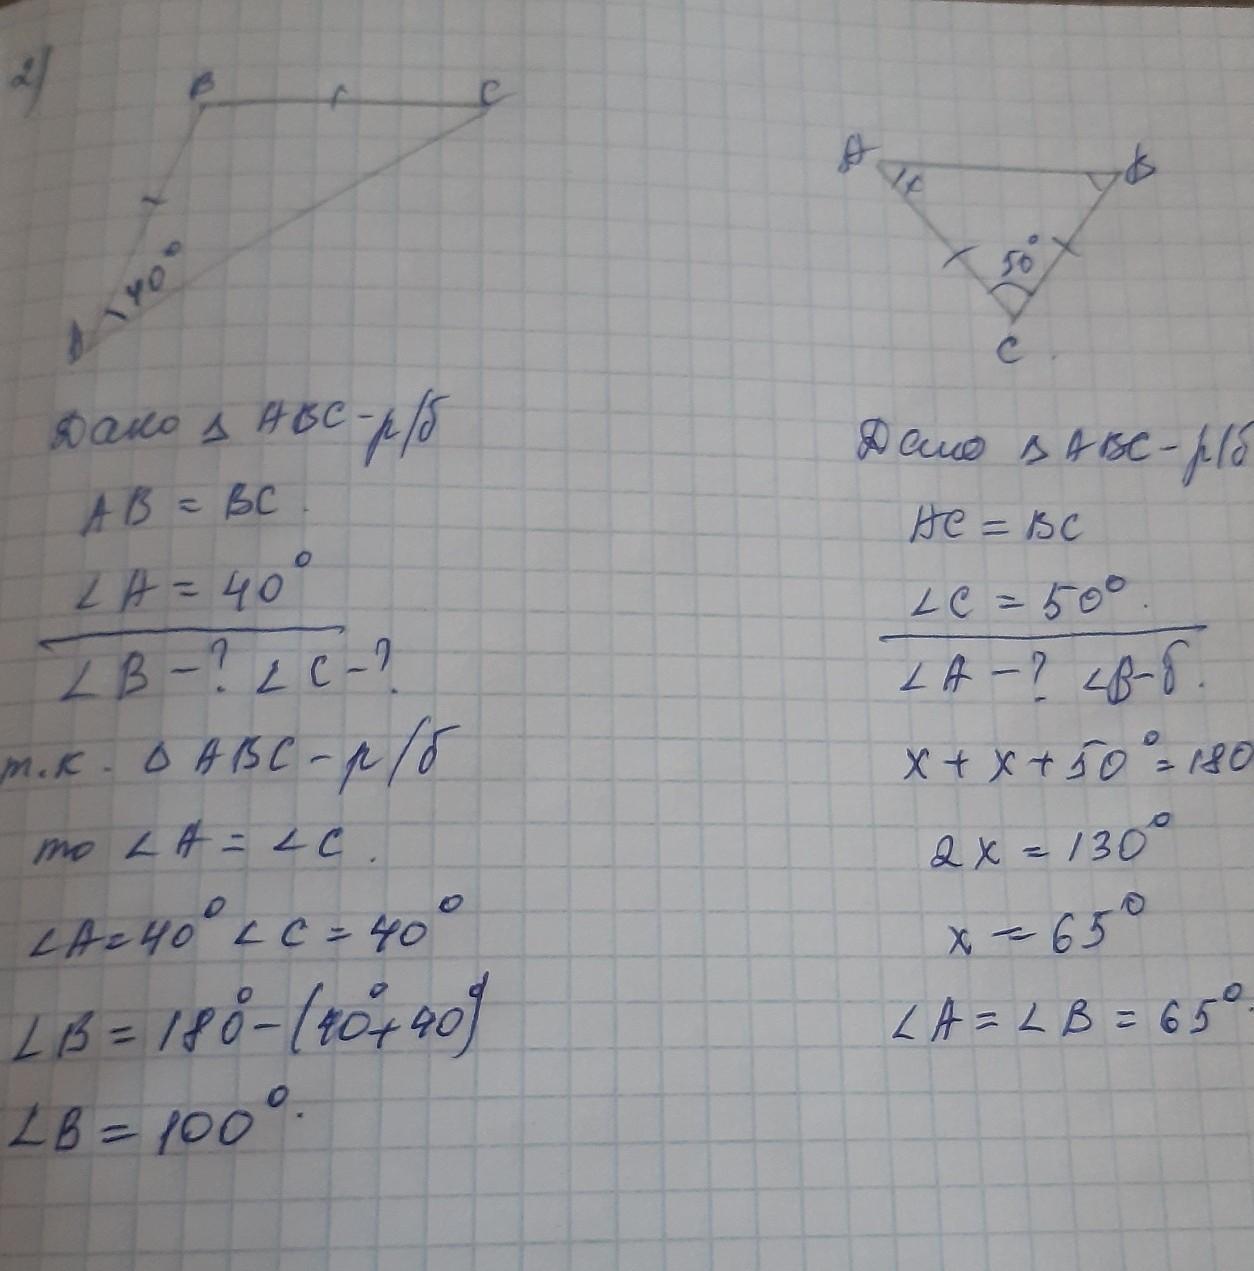 2)
B C
40°
A
Дано △ ABC - р/б
AB = BC.
∠A = 40°
∠B - ? ∠C - ?
т.к. △ ABC - р/б
то ∠A = ∠C.
∠A = 40° ∠C = 40°
∠B = 180° - (40° + 40°)
∠B = 100°.
A B
x
50°
C
Дано △ ABC - р/б
AC = BC
∠C = 50°.
∠A - ? ∠B -
x + x + 50° = 180
2x = 130°
x = 65°
∠A = ∠B = 65°.